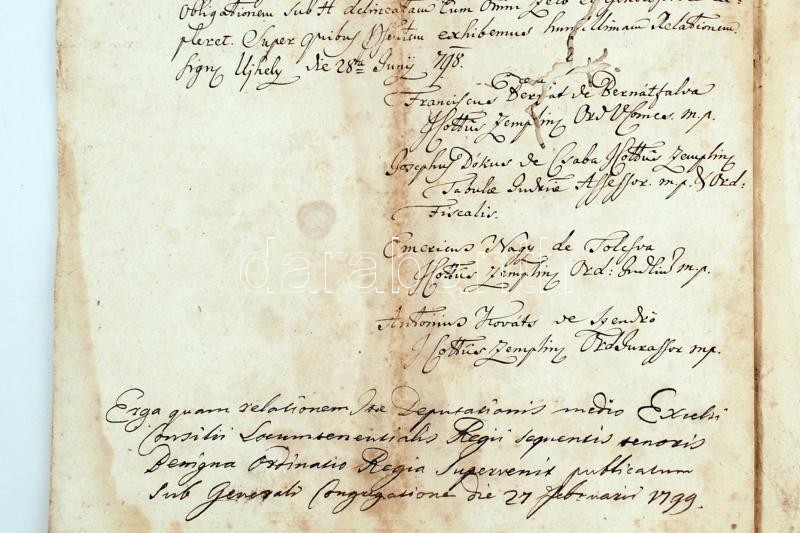 Obligationem sub H delineatam cum omni zelo et
pleret. Super quibus exhibemus humillimam Relationem.
Sign Ujhely die 28va Junij 798.
Franciscus Bernát de Bernátfalva
ICottûs Zemplin Ord VComes. m.p.
Josephus Dókus de Csaba ICottûs Zemplin
Tabulæ Assessor. m.p. & Ord:
Fiscalis.
Emericus Nagy de Tolcsva
ICottûs Zemplin Ord: Judlium m.p.
Antonius Kováts de Szendrö
ICottûs Zemplin Ord Jurassor m.p.
darabanth
Erga quam relationem Deputationis medio Excelsi
Consilii Locumtenentialis Regii sequentis tenoris
Benigna Ordinatio Regia Supervenit publicatum
Sub Generali Congregatione die 27 Februarii 1799.